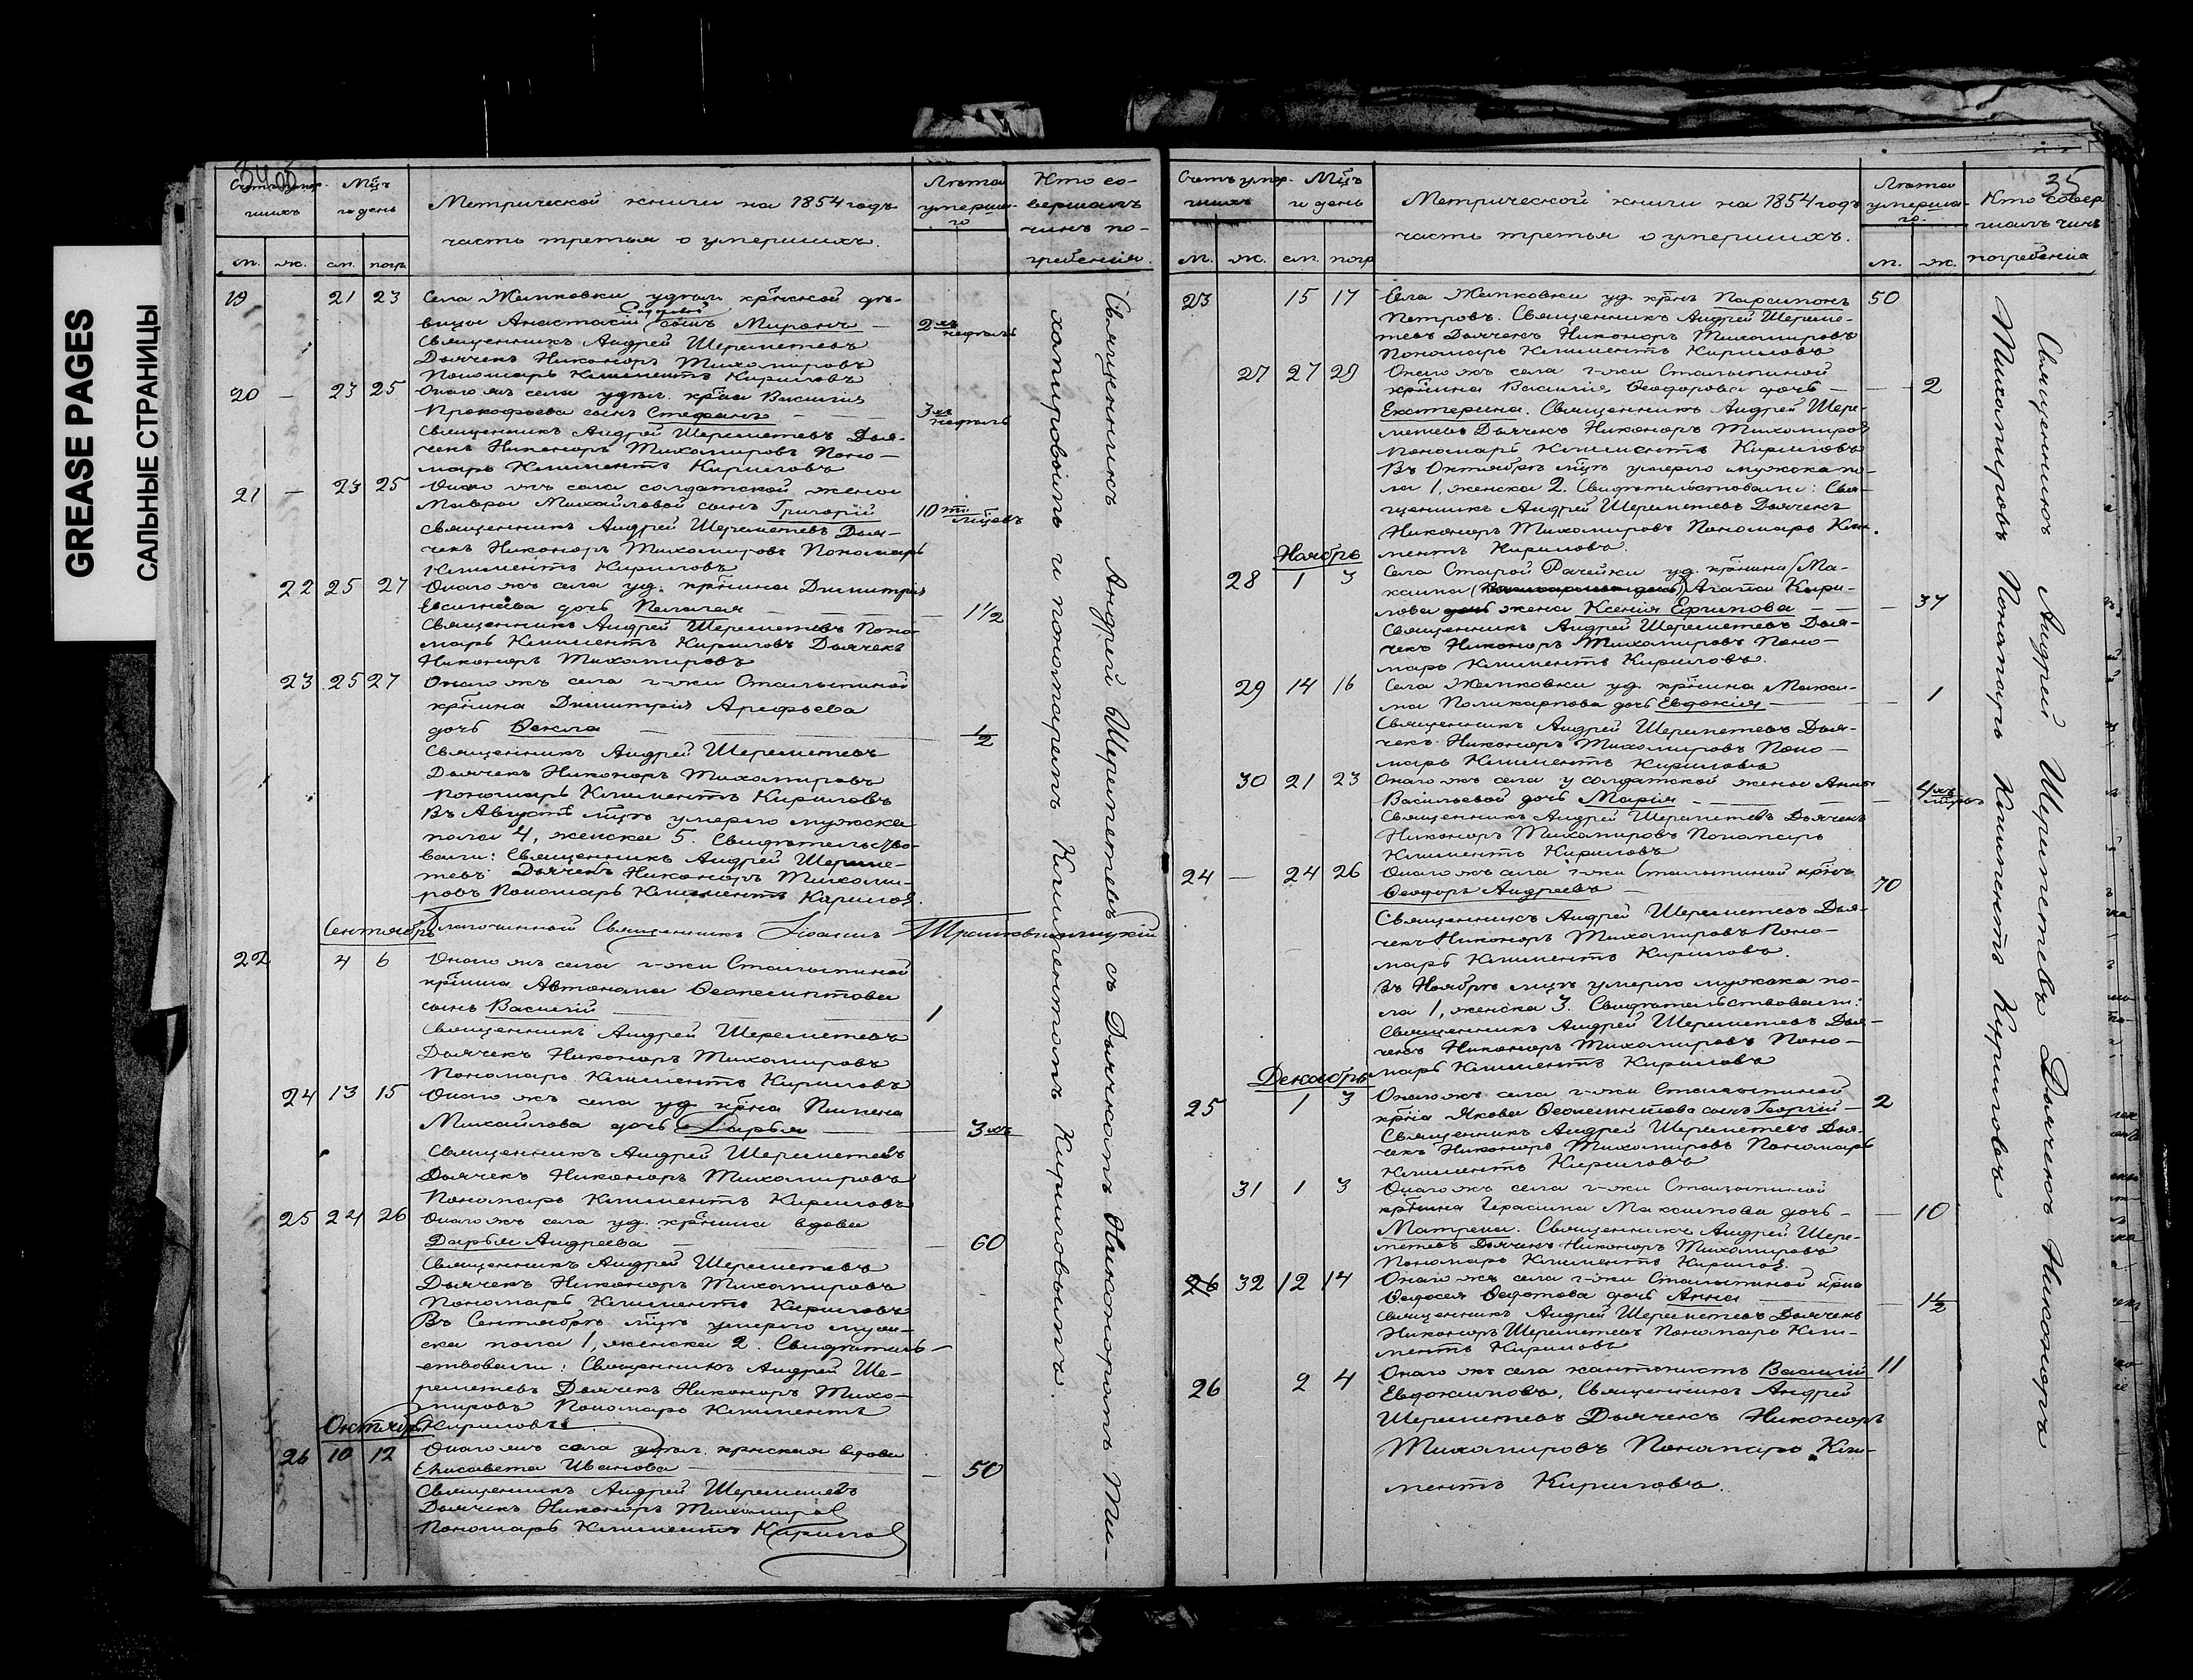 GREASE PAGES
САЛЬНЫЕ СТРАНИЦЫ
Мцъ Лета Кто со-
шихъ и день Метрической книги на 1854 годъ умерша- вершалъ
часть третья о умершихъ. го чинъ по-
м. ж. см. погр. гребенія.
19 21 23 Села Жемковки удѣл. крнской дѣ-
вицы Анастасіи Сидоровой сынъ Миронъ — 2хъ недѣль
Священникъ Андрей Шереметевъ
Дьячекъ Никоноръ Тихомировъ
Пономарь Климентъ Кириловъ
20 — 23 25 Онаго жъ села удѣл. крна Василія
Прокофьева сынъ Стефанъ — 3хъ недѣль
Священникъ Андрей Шереметевъ Дья-
чекъ Никоноръ Тихомировъ Поно-
марь Климентъ Кириловъ
21 — 23 25 Онаго жъ села солдатской жены
Мавры Михайловой сынъ Григорій 10ти мцовъ
Священникъ Андрей Шереметевъ Дья-
чекъ Никоноръ Тихомировъ Пономарь
Климентъ Кириловъ
22 25 27 Онаго жъ села уд. крнина Димитрія
Евсигнѣева дочь Пелагея — 1 1/2
Священникъ Андрей Шереметевъ Поно-
марь Климентъ Кириловъ Дьячекъ
Никоноръ Тихомировъ
23 25 27 Онаго жъ села г-жи Столыпиной
крнина Димитрія Арефьева
дочь Ѳекла — 1/2
Священникъ Андрей Шереметевъ
Дьячекъ Никоноръ Тихомировъ
Пономарь Климентъ Кириловъ
Въ Августѣ мцѣ умерло мужска
пола 4, женска 5. Свидѣтельство-
вали: Священникъ Андрей Шереме-
тевъ Дьячекъ Никоноръ Тихоми-
ровъ Пономарь Климентъ Кириловъ
Благочинный Священникъ Іоаннъ
Сентябрь
22 4 6 Онаго жъ села г-жи Столыпиной
крнина Автонома Ѳеопемптова
сынъ Василій — 1
Священникъ Андрей Шереметевъ
Дьячекъ Никоноръ Тихомировъ
Пономарь Климентъ Кириловъ
24 13 15 Онаго жъ села уд. крна Пимена
Михайлова дочь Дарья — 3хъ
Священникъ Андрей Шереметевъ
Дьячекъ Никоноръ Тихомировъ
Пономарь Климентъ Кириловъ
25 24 26 Онаго жъ села уд. крнина вдова
Дарья Андреева — 60
Священникъ Андрей Шереметевъ
Дьячекъ Никоноръ Тихомировъ
Пономарь Климентъ Кириловъ
Въ Сентябрѣ мцѣ умерло муж-
ска пола 1, женска 2. Свидѣтель-
ствовали: Священникъ Андрей Ше-
реметевъ Дьячекъ Никоноръ Тихо-
мировъ Пономарь Климентъ
Кириловъ
Октябрь
26 10 12 Онаго жъ села удѣл. крнская вдова
Елисавета Иванова — 50
Священникъ Андрей Шереметевъ
Дьячекъ Никоноръ Тихомировъ
Пономарь Климентъ Кириловъ
Священникъ Андрей Шереметевъ съ Дьячкомъ Никоноромъ Ти-
хомировымъ и пономаремъ Климентомъ Кириловымъ.
35
Счетъ умер- Мцъ Лета Кто совер
шихъ и день Метрической книги на 1854 годъ умерша- шалъ чинъ
часть третья о умершихъ. го. погребенія
м. ж. см. погр м. ж.
23 15 17 Села Жемковки уд. крнъ Парамонъ 50
Петровъ. Священникъ Андрей Шереме-
тевъ Дьячекъ Никоноръ Тихомировъ
Пономарь Климентъ Кириловъ
27 27 29 Онаго жъ села г-жи Столыпиной
крнина Василія Ѳеодорова дочь — 2
Екатерина. Священникъ Андрей Шере-
метевъ Дьячекъ Никоноръ Тихомиров
Пономарь Климентъ Кириловъ
Въ Октябрѣ мцѣ умерло мужска по-
ла 1, женска 2. Свидѣтельствовали: Свя-
щенникъ Андрей Шереметевъ Дьячекъ
Никоноръ Тихомировъ Пономарь Кли-
ментъ Кириловъ.
Ноябрь
28 1 3 Села Старой Рачейки уд. крнина Ма-
ксима Агапа Кири-
лова жена Ксенія Ефимова — 37
Священникъ Андрей Шереметевъ Дья-
чекъ Никоноръ Тихомировъ Поно-
марь Климентъ Кириловъ.
29 14 16 Села Жемковки уд. крнина Макси-
ма Поликарпова дочь Евдокія — 1
Священникъ Андрей Шереметевъ Дья-
чекъ Никоноръ Тихомировъ Поно-
марь Климентъ Кириловъ
30 21 23 Онаго жъ села у солдатской жены Анны
Васильевой дочь Марія — 4хъ
Священникъ Андрей Шереметевъ Дьячекъ
Никоноръ Тихомировъ Пономарь
Климентъ Кириловъ
24 — 24 26 Онаго жъ села г-жи Столыпиной крнъ
Ѳеодоръ Андреевъ — 70
Священникъ Андрей Шереметевъ Дья-
чекъ Никоноръ Тихомировъ Поно-
марь Климентъ Кириловъ.
Въ Ноябрѣ мцѣ умерло мужска по-
ла 1, женска 3. Свидѣтельствовали:
Священникъ Андрей Шереметевъ Дья-
чекъ Никоноръ Тихомировъ Поно-
марь Климентъ Кириловъ
Декабрь
25 1 3 Онаго жъ села г-жи Столыпиной
крна Якова Ѳеопемптова сынъ Георгій — 2
Священникъ Андрей Шереметевъ Дья-
чекъ Никоноръ Тихомировъ Пономарь
Климентъ Кириловъ
31 1 3 Онаго жъ села г-жи Столыпиной
крнина Герасима Максимова дочь — 10
Матрена. Священникъ Андрей Шере-
метевъ Дьячекъ Никоноръ Тихомировъ
Пономарь Климентъ Кириловъ.
26 32 12 14 Онаго жъ села г-жи Столыпиной крна
Ѳедосея Ѳедотова дочь Анна — 1 1/2
Священникъ Андрей Шереметевъ Дьячекъ
Никоноръ Шереметевъ Пономарь Кли-
ментъ Кириловъ
26 2 4 Онаго жъ села кантонистъ Василій 11
Евдокимовъ. Священникъ Андрей
Шереметевъ Дьячекъ Никоноръ
Тихомировъ Пономарь Кли-
ментъ Кириловъ.
Священникъ Андрей Шереметевъ Дьячекъ Никоноръ
Тихомировъ Пономарь Климентъ Кириловъ